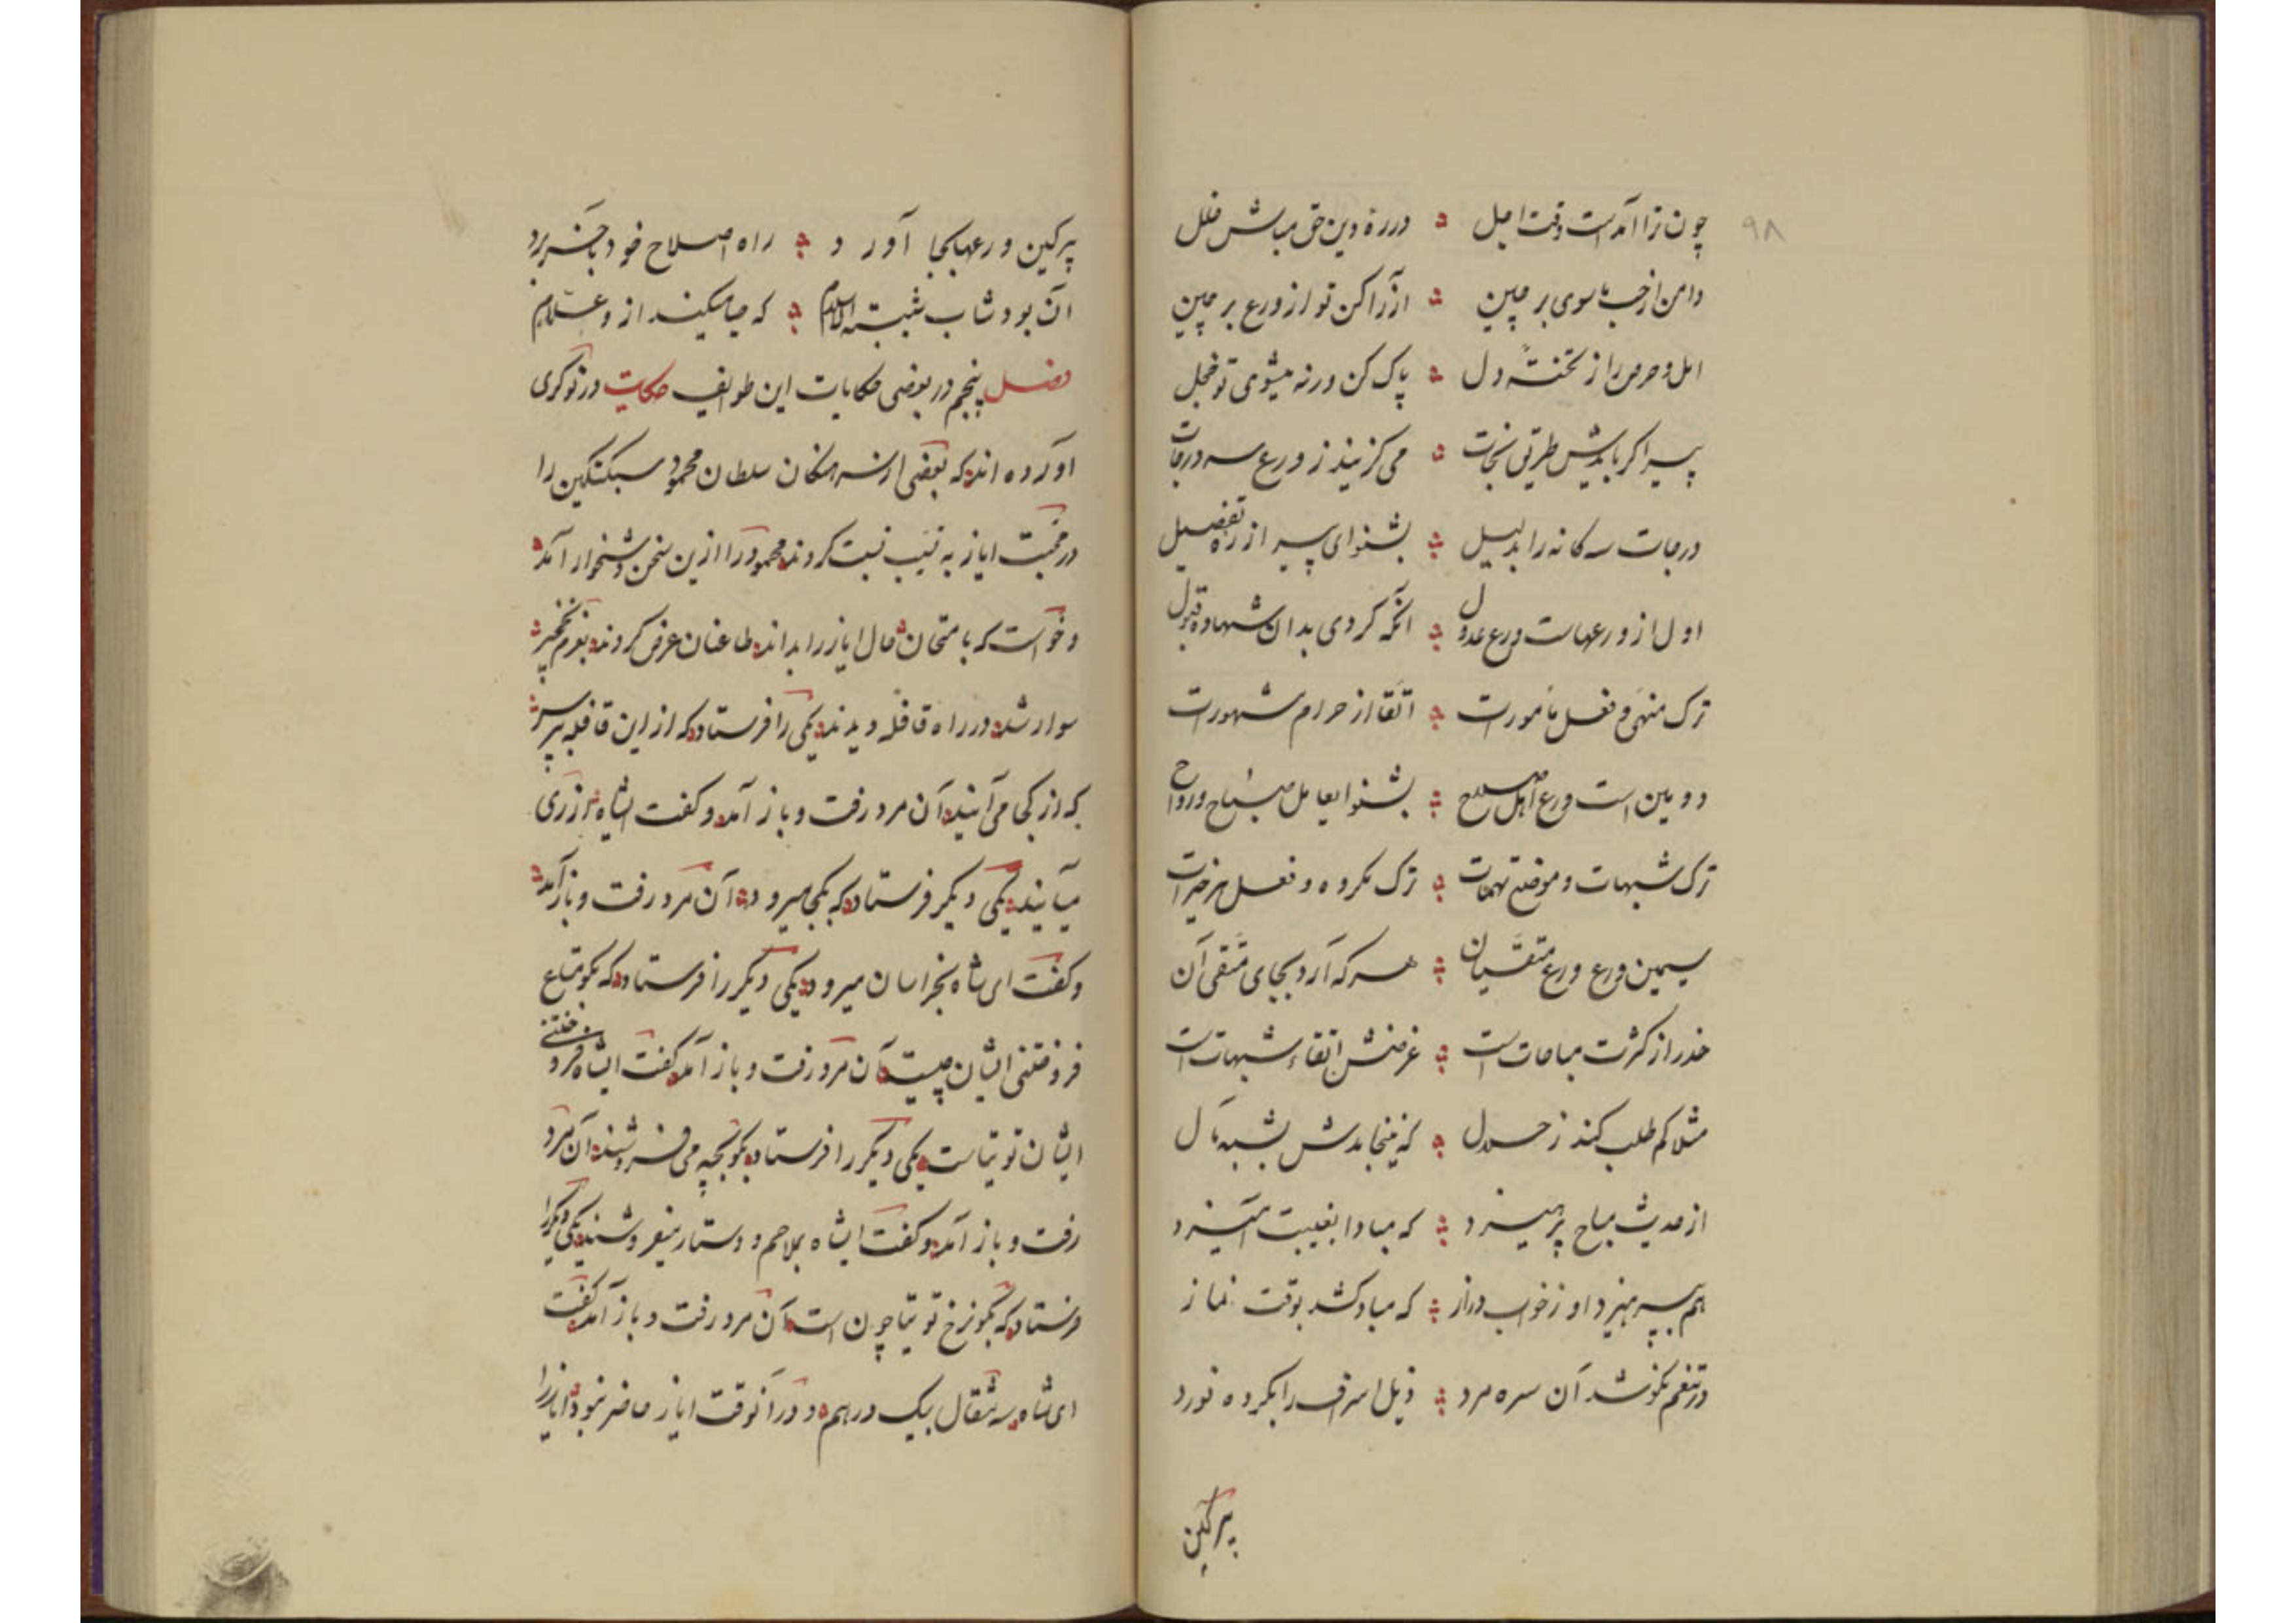 ۹۸
چون ترا آمد است وقت اجل ؞ در ره دین حق مباش مخل
دامن از حب ماسوی برچین ؞ آزرا کن تو از ورع پرچین
امل و حرص را ز تخته دل ؞ پاک کن ورنه میشوی تو خجل
پیر اگر بایدش طریق نجات ؞ می گزیند ز ورع سه درجات
درجات سه گانه را بدلیل ؞ بشنو ای پیر از ره تفصیل
اول از ورعهات ورع عدول ؞ آنکه گردی بدان شهاده قبول
ترک منهی و فعل مأمورات ؞ اتقا از حرام مشهورات
دویمین است ورع اهل صلاح ؞ بشنو ایعامل صباح و رواح
ترک شبهات و موضع تهمات ؞ ترک مکروه و فعل هر خیرات
سیمین ورع ورع متقیان ؞ هر که آرد بجای متقی آن
حذر از کثرت مباحات است ؞ غرضش اتقاء شبهات است
مثلا کم طلب کند ز حلال ؞ که نینجامدش بشبهه مآل
از حدیث مباح پرهیزد ؞ که مبادا بغیبت آمیزد
هم بپرهیزد او ز خواب دراز ؞ که مبادا کشد بوقت نماز
در تنعم نکوشد آن سره مرد ؞ ذیل اسراف را بکرده نورد
پیر کین
پیر کین ورعها بجا آورد ؞ راه اصلاح خود بآخر برد
آن بود شاب شیبته الاسلام ؞ که حیا میکند ازو علام
فصل پنجم در بعضی حکایات این طوایف حکایت در نوکری
آورده اند که بعضی از سرهنگان سلطان محمود سبکتکین را
در محبت ایاز به نسبت کردند محمود را ازین سخن دشخوار آمد
و خواست که بامتحان حال ایاز را بداند طاعنان عرض کردند بعزم نخجیر
سوار شد در راه قافله دیدند یکی را فرستاد که از این قافله بپرس
که از کجا می آیند آن مرد رفت و باز آمد و گفت ایشاه از ری
میآیند یکی دیگر فرستاد که بکجا میرود آن مرد رفت و باز آمد
و گفت ای شاه بخراسان میرود یکی دیگر را فرستاد که بگو متاع
فروختنی ایشان چیست آن مرد رفت و باز آمد گفت ایشاه فروختنی
ایشان توتیاست یکی دیگر را فرستاد بگو بچه می فروشند آن مرد
رفت و باز آمد و گفت ایشاه بملاحم و دستار میفروشند یکی دیگر را
فرستاد که بگو نرخ توتیا چون است آن مرد رفت و باز آمد گفت
ای شاه سه مثقال بیک درهم و در آنوقت ایاز حاضر نبود ایاز را